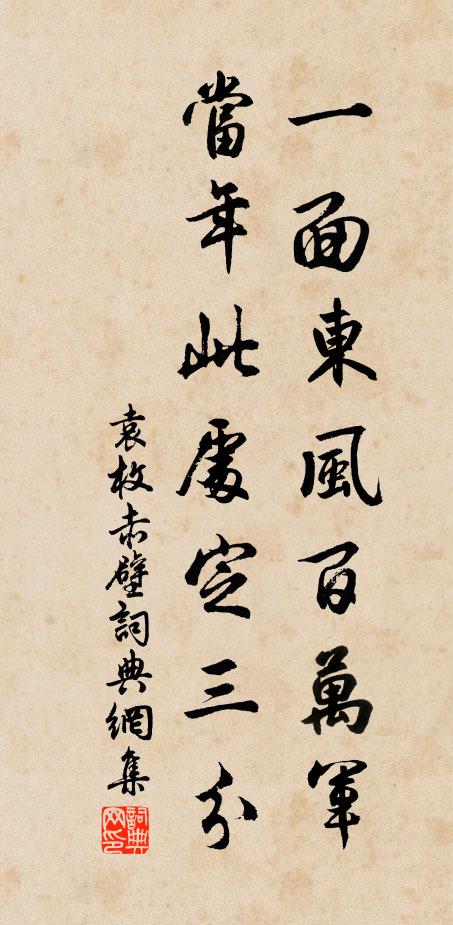 一面東風百萬軍
當年此處定三分
袁枚赤壁詞典網集
詞典網印